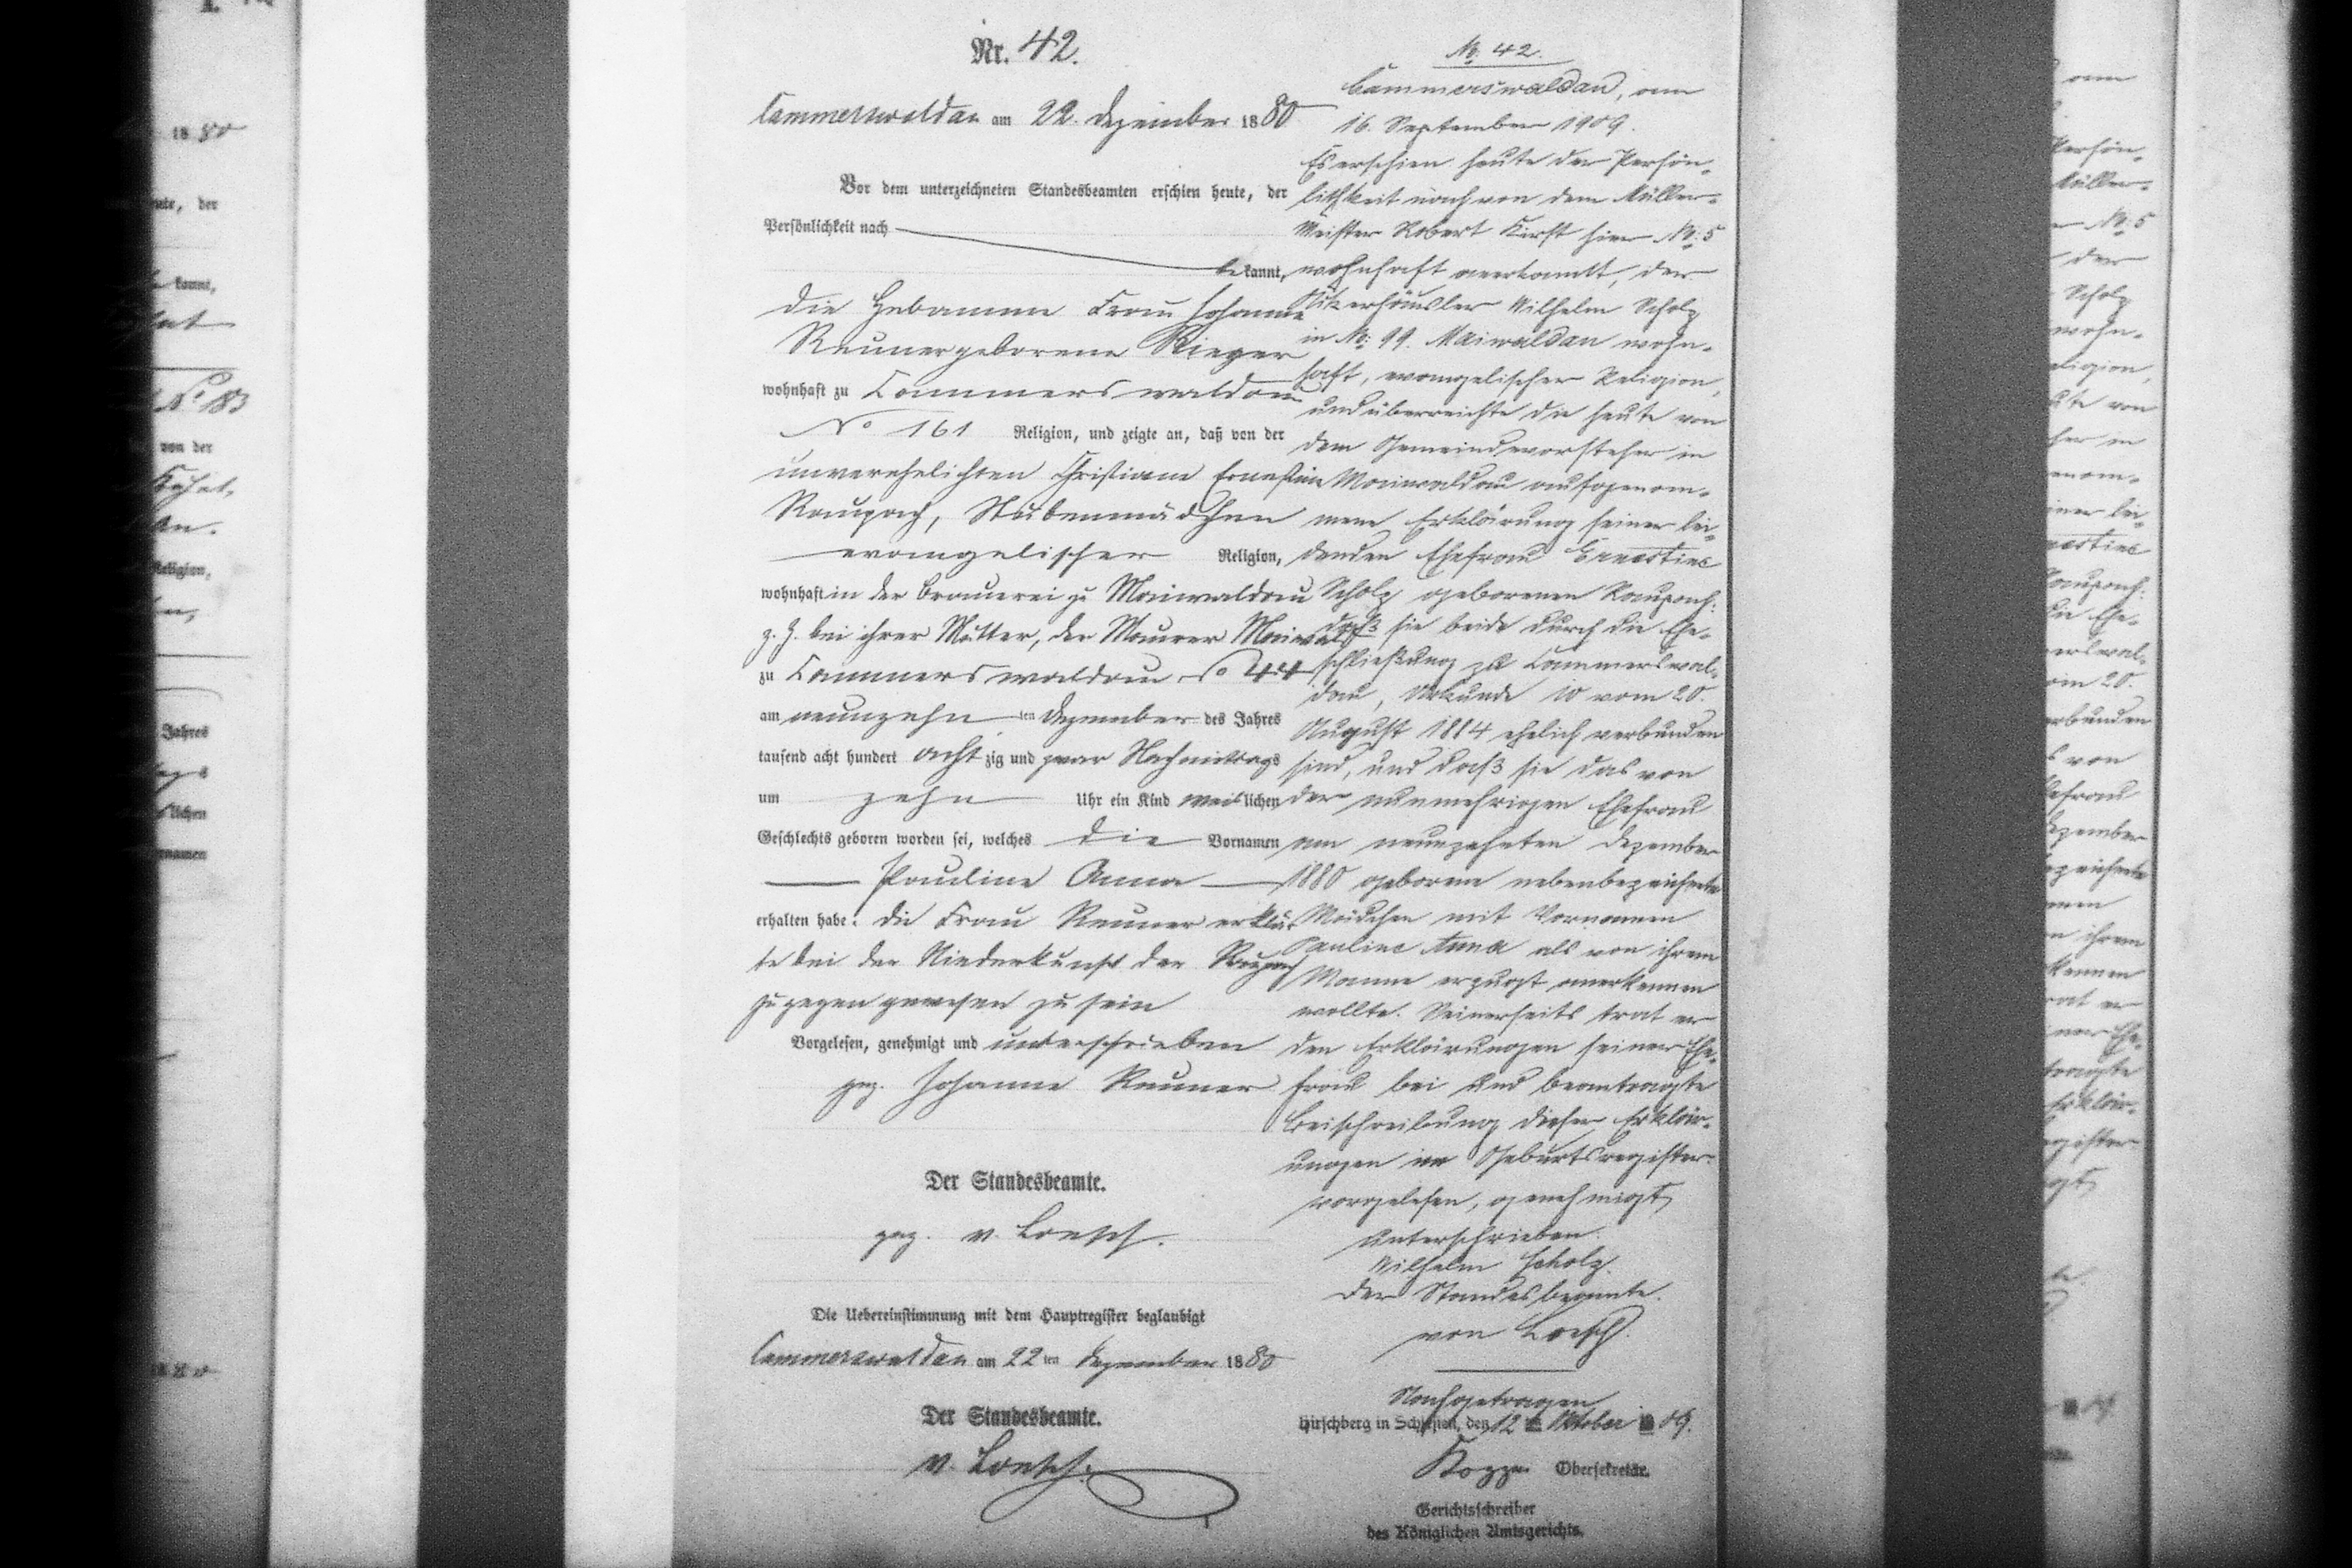 Nr. 42.
Cammerswaldau am 22. Dezember 1880
Vor dem unterzeichneten Standesbeamten erschien heute, der
Persönlichkeit nach
bekannt,
die Hebamme Frau Johanne
Renner geborene Rieger
wohnhaft zu Cammerswaldau
No 161 Religion, und zeigte an, daß von der
unverehelichten Christiane Ernestine
Raupach, Stubenmädchen
evangelischer Religion,
wohnhaft in der Brauerei zu Maiwaldau
z. Z. bei ihrer Mutter, der Maurer Maiwald
zu Cammerswaldau No 44
am neunzehn ten Dezember des Jahres
tausend acht hundert achtzig und zwar Nachmittags
um zehn Uhr ein Kind weiblichen
Geschlechts geboren worden sei, welches die Vornamen
Pauline Anna
erhalten habe. die Frau Renner erklär
te bei der Niederkunft der Raupach
zugegen gewesen zu sein
Vorgelesen, genehmigt und unterschrieben
gez. Johanne Renner
Der Standesbeamte.
gez. v. Loesch.
Die Uebereinstimmung mit dem Hauptregister beglaubigt
Cammerswaldau am 22 ten Dezember 1880
Der Standesbeamte.
v. Loesch.
No. 42.
Cammerswaldau, am
16. September 1909.
Es erschien heute der Persön-
lichkeit nach von dem Müller-
Meister Robert Kirst hier No. 5
wohnhaft anerkannt, der
häusler Wilhelm Scholz
in No. 99. Maiwaldau wohn-
haft, evangelischer Religion,
und überreichte die heute von
dem Gemeindevorsteher in
Maiwaldau aufgenom-
mene Erklärung seiner lei-
denden Ehefrau Ernestine
Scholz geborenen Raupach:
daß sie beide durch die Ehe-
schließung zu Cammerswal-
dau, Urkunde 10 vom 20.
August 1884 ehelich verbunden
sind, und daß sie das von
der nunmehrigen Ehefrau
am neunzehnten Dezember
1880 geborene nebenbezeichnete
Mädchen mit Vornamen
Pauline Anna als von ihrem
Manne erzeugt anerkennen
wollte. Seinerseits trat er
den Erklärungen seiner Ehe-
frau bei und beantragte
Beischreibung dieser Erklär-
ungen im Geburtsregister.
vorgelesen, genehmigt,
Unterschrieben.
Wilhelm Scholz.
Der Standesbeamte.
von Loesch.
Nachgetragen
Hirschberg in Schlesien, den 12 Oktober 09.
Obersekretär.
Gerichtsschreiber
des Königlichen Amtsgerichts.